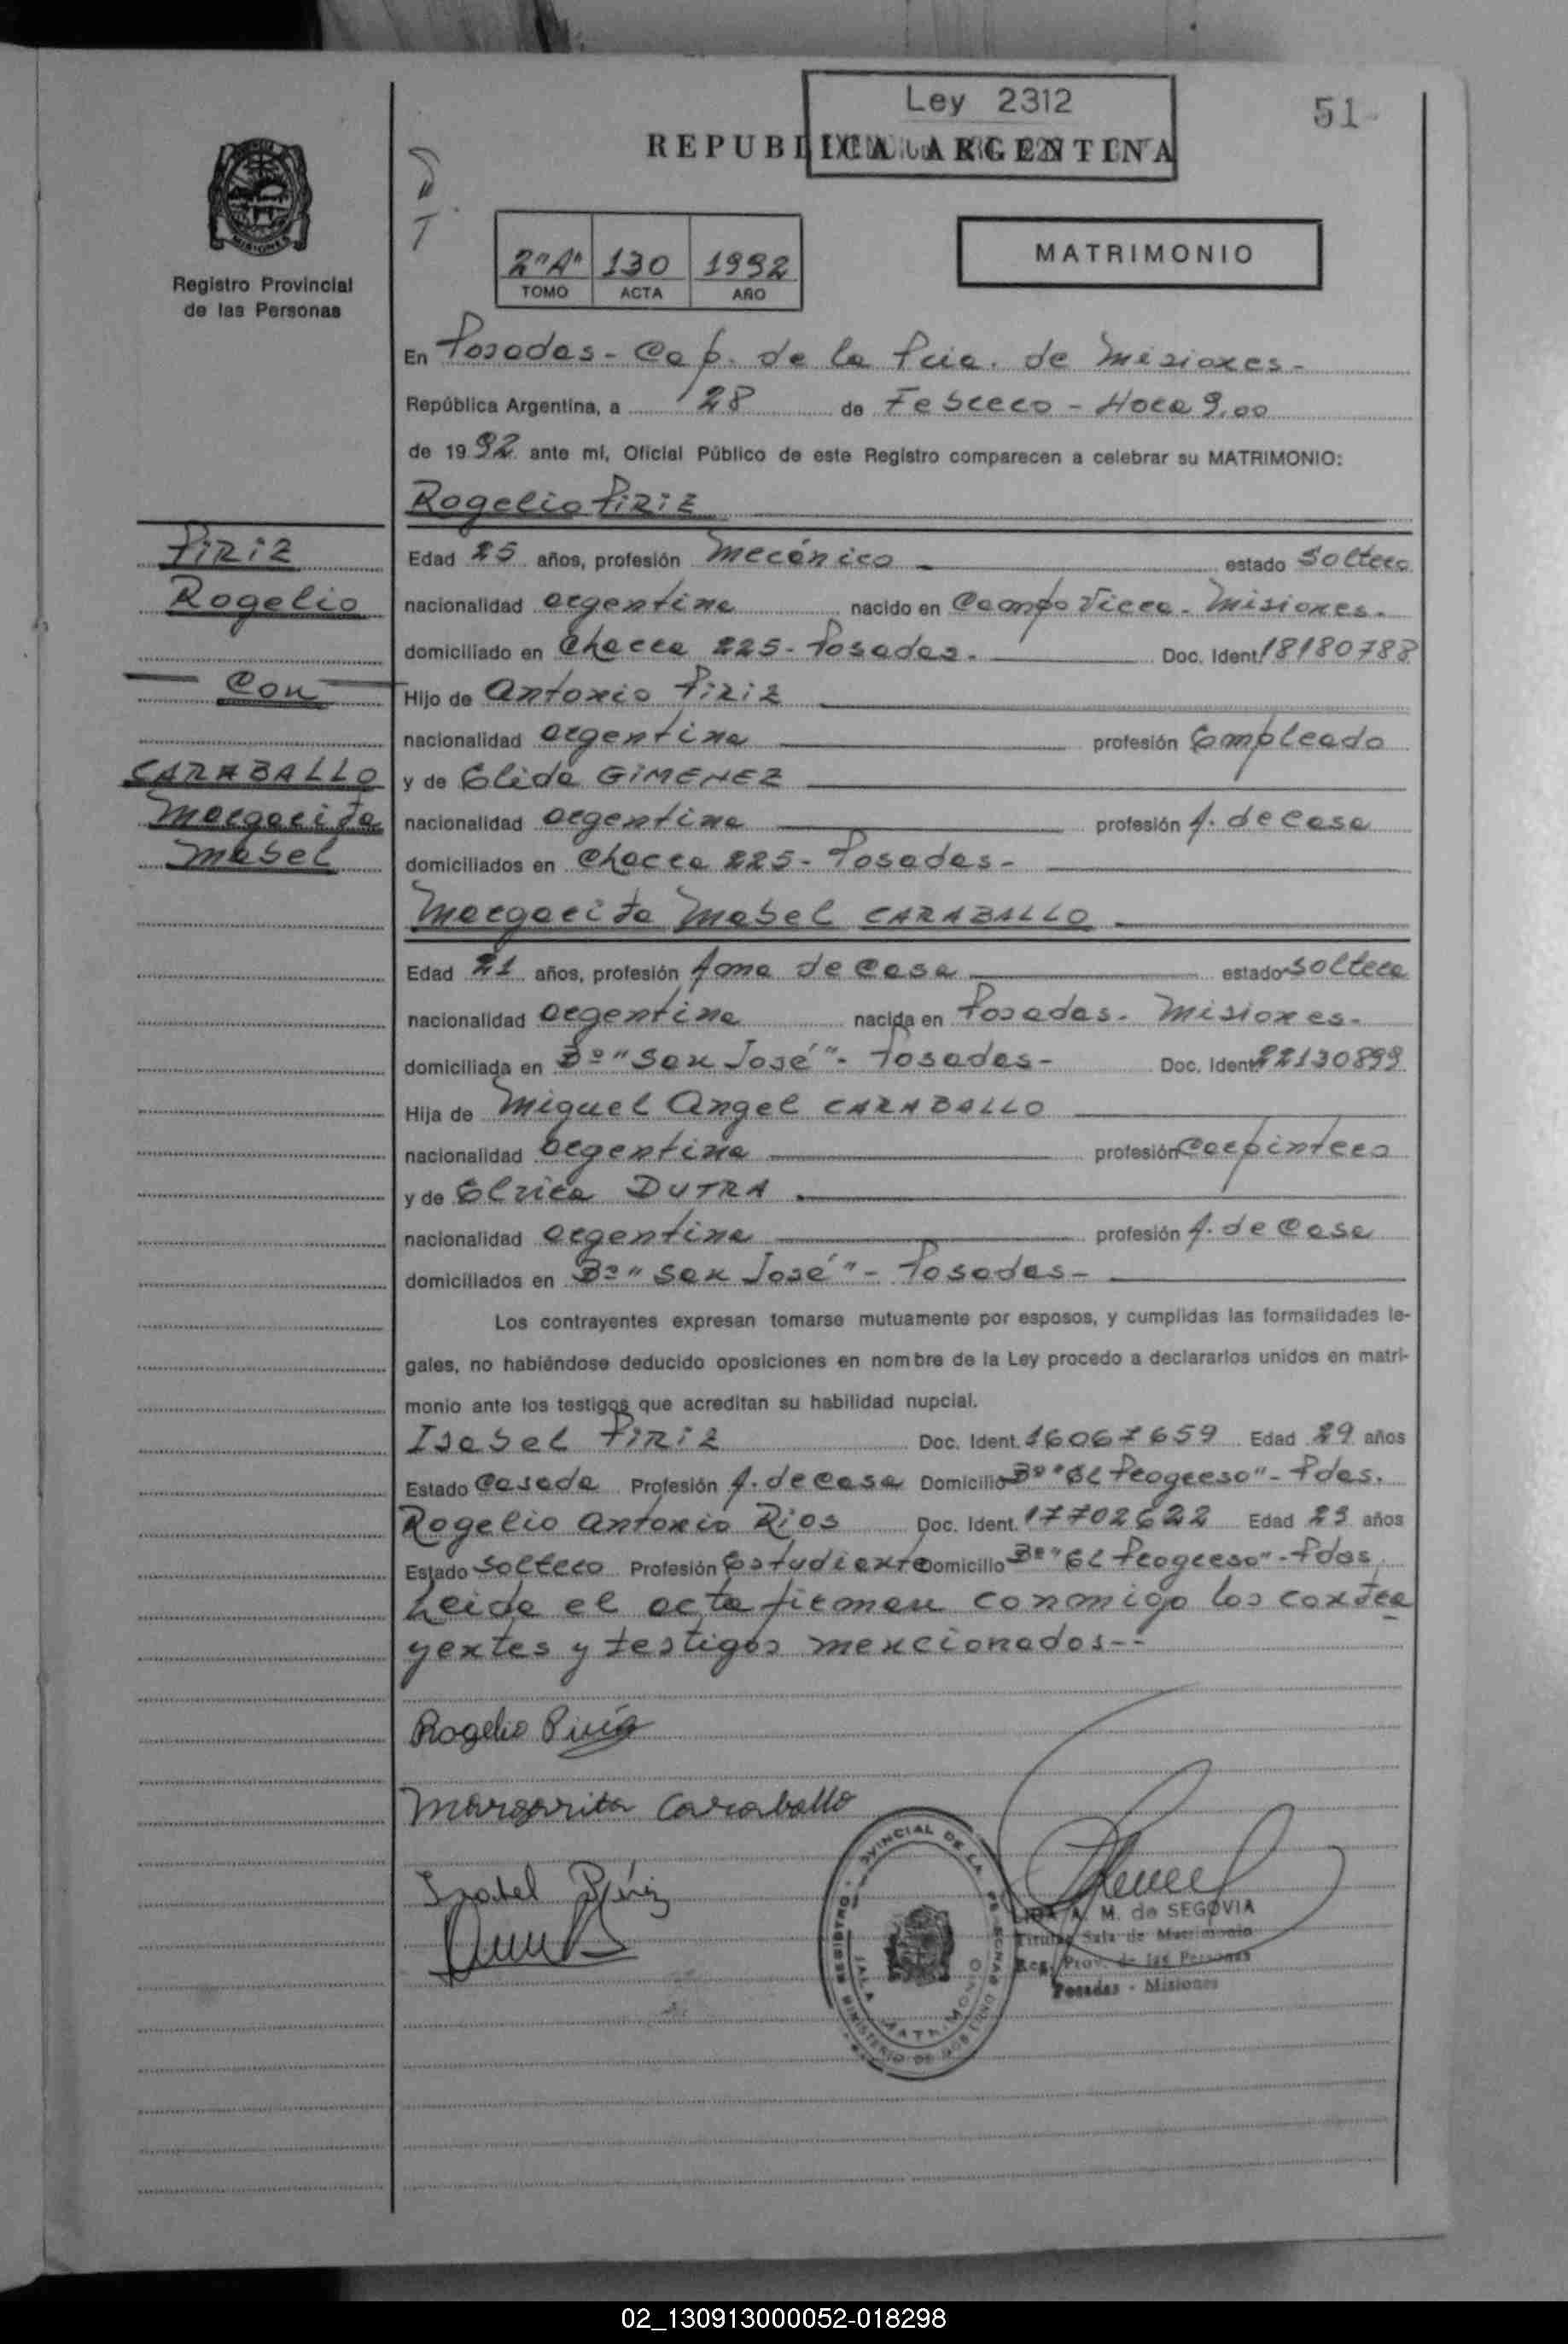 Ley 2312
51-
REPUBLICA ARGENTINA
MISIONES
Registro Provincial
de las Personas
2º"A" 130 1992
TOMO ACTA AÑO
MATRIMONIO
En Posadas - Cap. de la Pcia. de Misiones -
República Argentina, a 28 de Febrero - Hora 9,00
de 1992 ante mí, Oficial Público de este Registro comparecen a celebrar su MATRIMONIO:
Rogelio PiRiZ
PiRiZ
Rogelio
Con
CARABALLO
Margarita
Mabel
Edad 25 años, profesión Mecánico estado Soltero
nacionalidad argentina nacido en Campo Viera - Misiones -
domiciliado en Chacra 225 - Posadas - Doc. Ident. 18180788
Hijo de Antonio PiRiZ
nacionalidad argentina profesión Empleado
y de Elida GiMENEZ
nacionalidad argentina profesión A. de casa
domiciliados en Chacra 225 - Posadas -
Margarita Mabel CARABALLO
Edad 21 años, profesión Ama de casa estado Soltera
nacionalidad argentina nacida en Posadas - Misiones -
domiciliada en Bº "San José" - Posadas - Doc. Ident. 22130899
Hija de Miguel Angel CARABALLO
nacionalidad argentina profesión Carpintero
y de Elvira DUTRA
nacionalidad argentina profesión A. de Casa
domiciliados en Bº "San José" - Posadas -
Los contrayentes expresan tomarse mutuamente por esposos, y cumplidas las formalidades le-
gales, no habiéndose deducido oposiciones en nombre de la Ley procedo a declararlos unidos en matri-
monio ante los testigos que acreditan su habilidad nupcial.
Isabel PiRiZ Doc. Ident. 16067659 Edad 29 años
Estado Casada Profesión A. de casa Domicilio Bº "El Progreso" - Pdas.
Rogelio Antonio Rios Doc. Ident. 17702622 Edad 25 años
Estado Soltero Profesión Estudiante Domicilio Bº "El Progreso" - Pdas.
Leida el acta firman conmigo los contra
yentes y testigos mencionados --
Rogelio Piriz
Margarita Caraballo
Isabel Píriz
A. M. de SEGOVIA
Titular Sala de Matrimonio
Reg. Prov. de las Personas
Posadas - Misiones
02_130913000052-018298